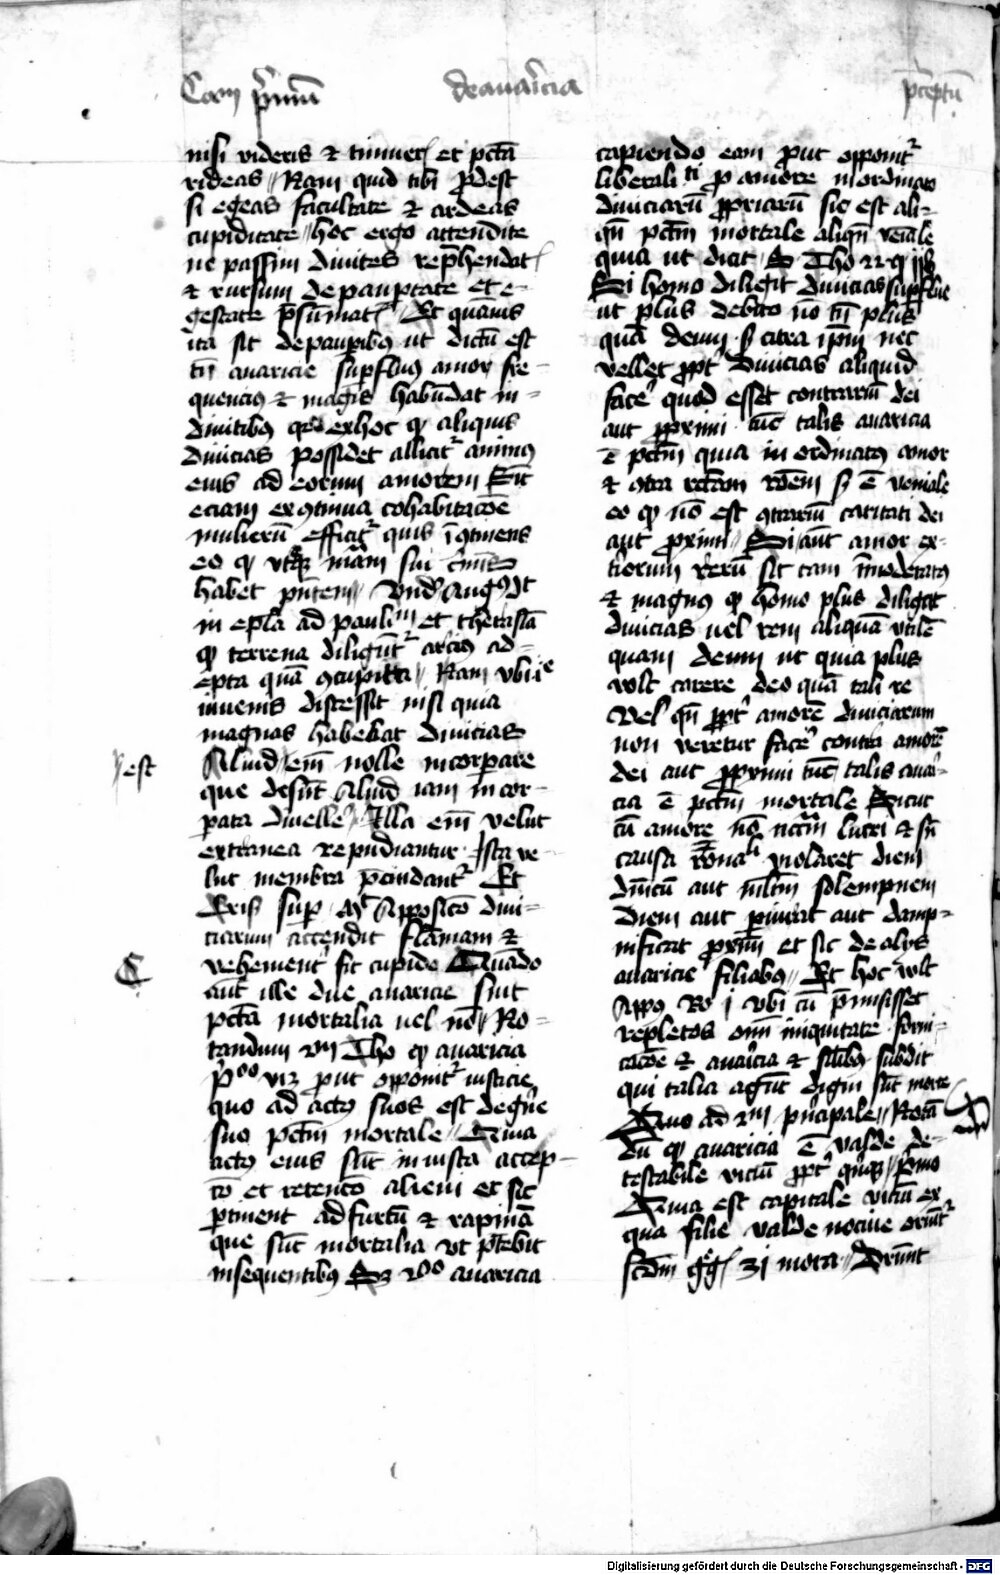 Cam primum
de auaricia
preceptum
nisi videris et timueris et pctā
rideas Nam quid tibi prodest
si egeas facultate et ardeas
cupiditate hoc ergo attendite
ne passim diuites reprehendatis
et rursum de paupertate et e-
gestate presumatis Et quāuis
ita sit de pauperibus ut dictū est
tn̄ auaricie superfluus amor fre-
quencius et magis habūdat in
diuitibus quod ex hoc quod aliquis
diuicias possidet allicitur animus
eius ad eorum amorem Sicut
eciam ex continua cohabitacōe
mulierū efficitur quis incontinens
eo quod
habet presentem Vnde Augus dicit
in epla ad paulinum et therasiā
quod terrena diliguntur arcius ad-
epta quā concupita Nam vnde ille
iuuenis discessit nisi quia
magnas habebat diuicias
est
Aliud enim nolle incorporare
que desunt Aliud iam incor-
porata diuellere Illa enim velut
extranea repudiantur Ista ve-
lut membra prescindantur Et
Cris super mt Apposicō diui-
ciarum accendit flāmam et
vehementior fit cupido Quādo
aut ille due auaricie sint
pctā mortalia uel nō No-
tandum secundum Tho quod auaricia
po vno put opponitur iusticie
quo ad actus suos est de genere
suo pctm̄ mortale Quia
actus eius sunt iniusta accep-
tō et retentō alieni et sic
pertinent ad furtū et rapinā
que sūt mortalia vt patebit
in sequentibus Sed 2o auaricia
capiendo eam prout opponitur
liberalitati pro amore inordinato
diuiciarū propriarū sic est ali-
qn̄ pctm̄ mortale aliqn̄ veniale
quia ut dicit S Tho
Si homo diligit diuicias superflue
ut plus debito nō tn̄ plus
quā deum sed citra ipm nec
vellet propter diuicias aliquid
facere quod esset contrariū dei
aut proximi tūc talis auaricia
ē pctm̄ quia inordinatus amor
et contra rectam racōem sed ē veniale
eo quod nō est contrariū caritati dei
aut proximi Si aut amor ex-
teriorum rerū sit tam immoderatus
et magnus quod homo plus diligit
diuicias uel rem aliquā vtilē
quam deum ut quia plus
vult carere deo quā tali re
Vel qn̄ propter amorē diuiciarum
non veretur facere contra amorē
dei aut proximi tūc talis auari-
cia ē pctm̄ mortale Sicut
cū amore nō lucri et sine
causa violaret diem
dn̄icū aut alium solempnem
diem aut periurat aut damp-
nificat proximū et sic de alijs
auaricie filiabus Et hoc vult
Appo Ro i vbi cū premisisset
repletos omi iniquitate forni-
cacōe et auaricia et similibus subdit
qui talia agunt digni sūt morte
Quo ad 2m principale Notā-
dū quod auaricia ē valde de-
testabile viciū propter Primo
Quia est capitale viciū ex
qua filie valde nociue oriuntur
scdm greg 31 mora Oriunt